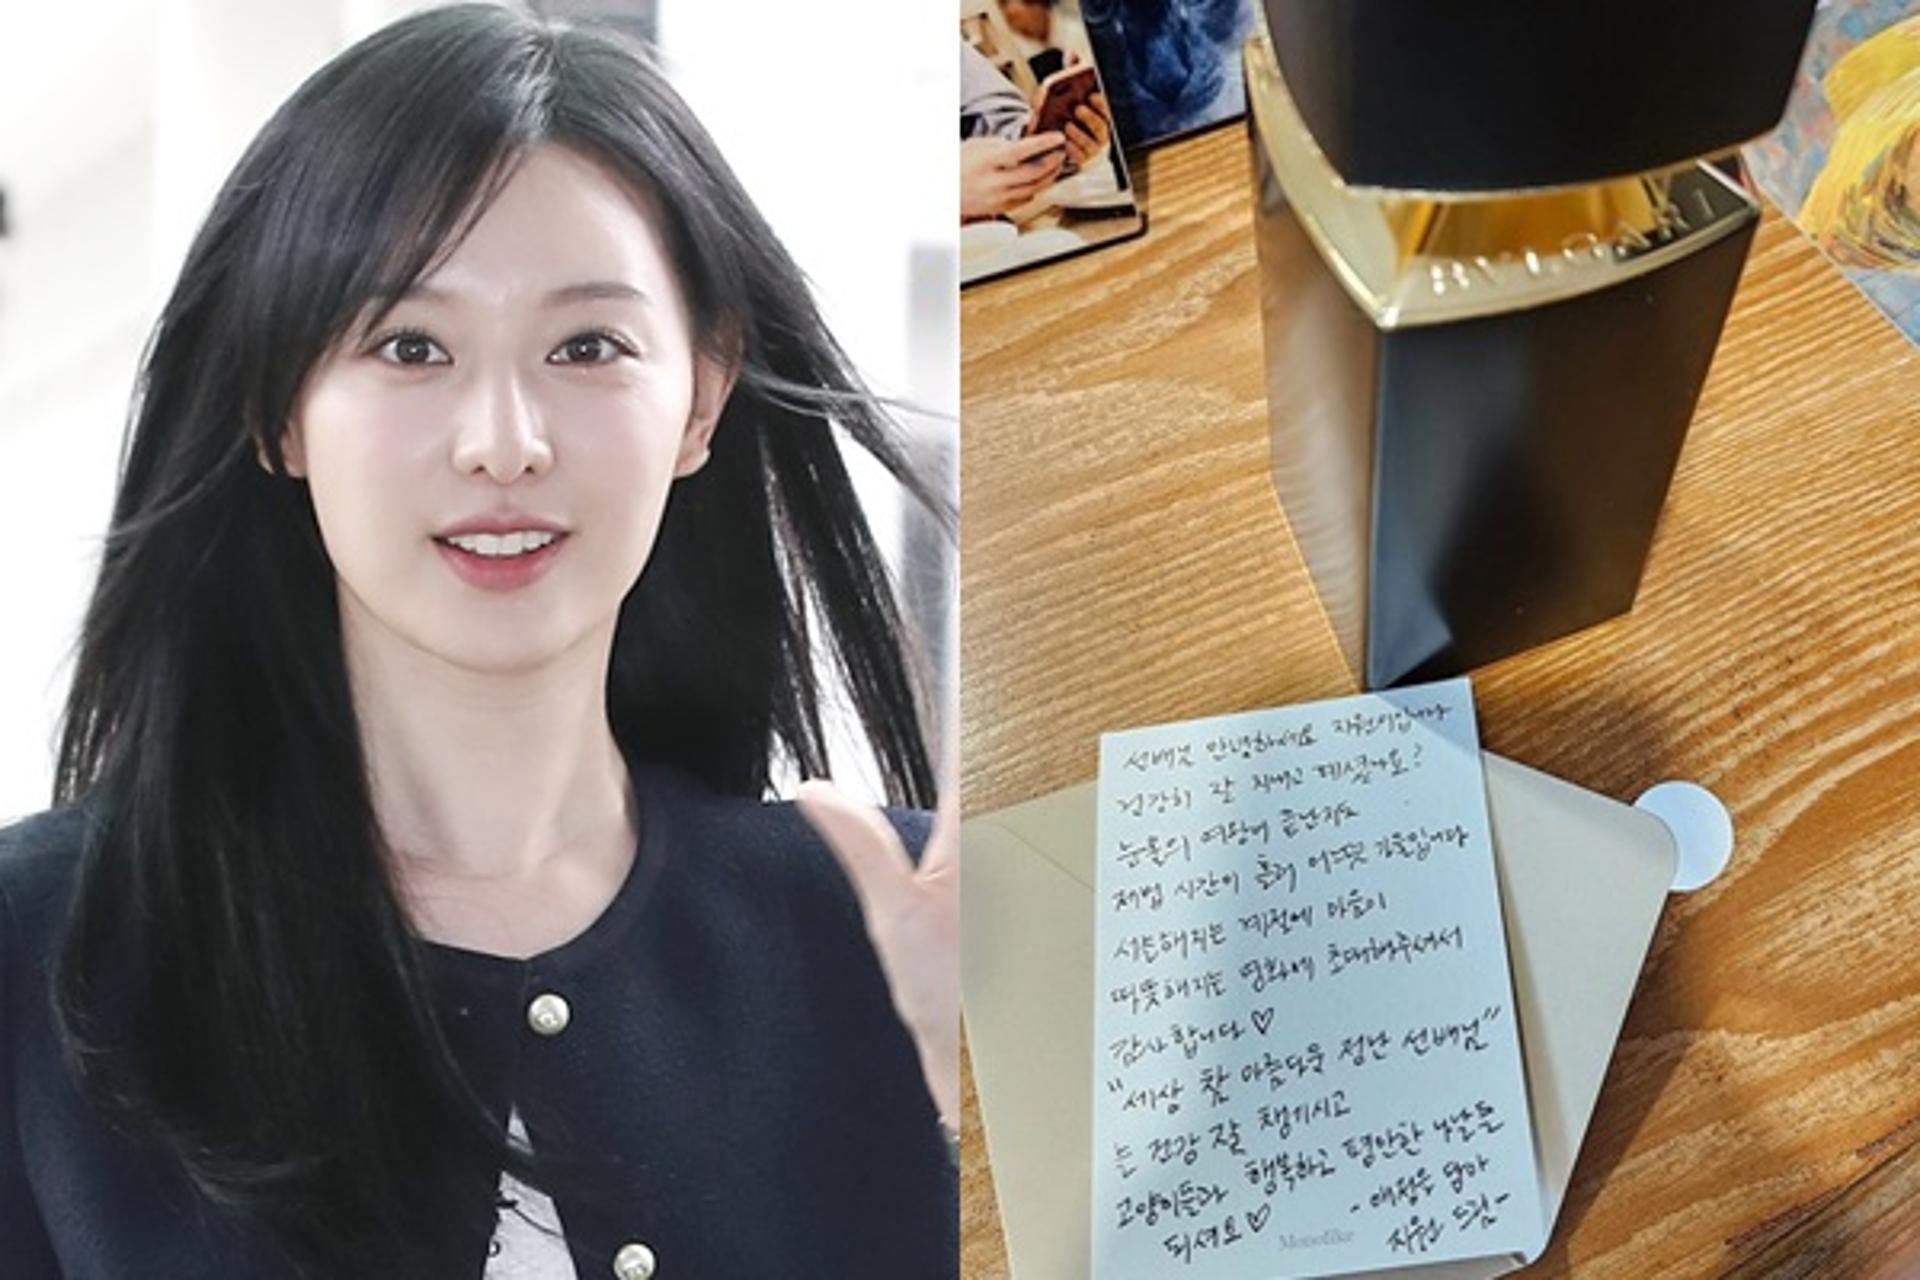 BVLGARI
선배님 안녕하세요 지원이입니다
건강히 잘 지내고 계셨나요?
눈물의 여왕이 끝난지도
제법 시간이 흘러 어느덧 가을입니다
서늘해지는 계절에 마음이
따뜻해지는 영화에 초대해주셔서
감사합니다♡
"세상 참 아름다운 정난 선배님"
늘 건강 잘 챙기시고
고양이들과 행복하고 평안한 나날들
되셔요♡
-애정을 담아
지원 드림-
Monolike